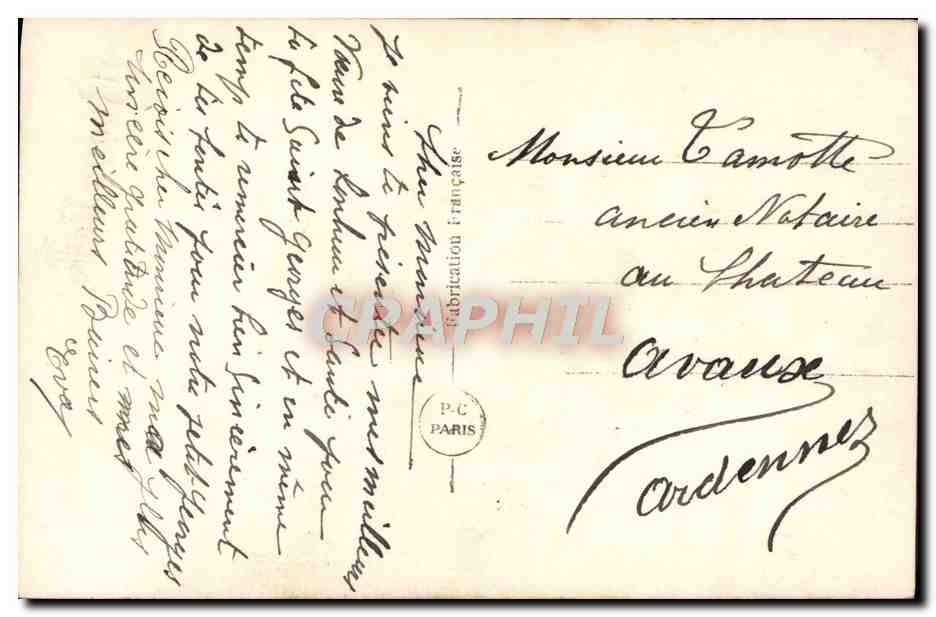 Cher Monsieur
Je viens te présenter mes meilleurs
Vœux de bonheur et Santé pour
ta fête Saint Georges et en même
temps te remercier bien Sincèrement
de tes bontés pour notre petit Georges
Reçois cher Monsieur ma plus
sincère Gratitude et mes
meilleurs Baisers
Eva
Fabrication Française
P-C
PARIS
Monsieur Tamotte
ancien Notaire
au Chateau
Avaux
Ardennes
CRAPHIL